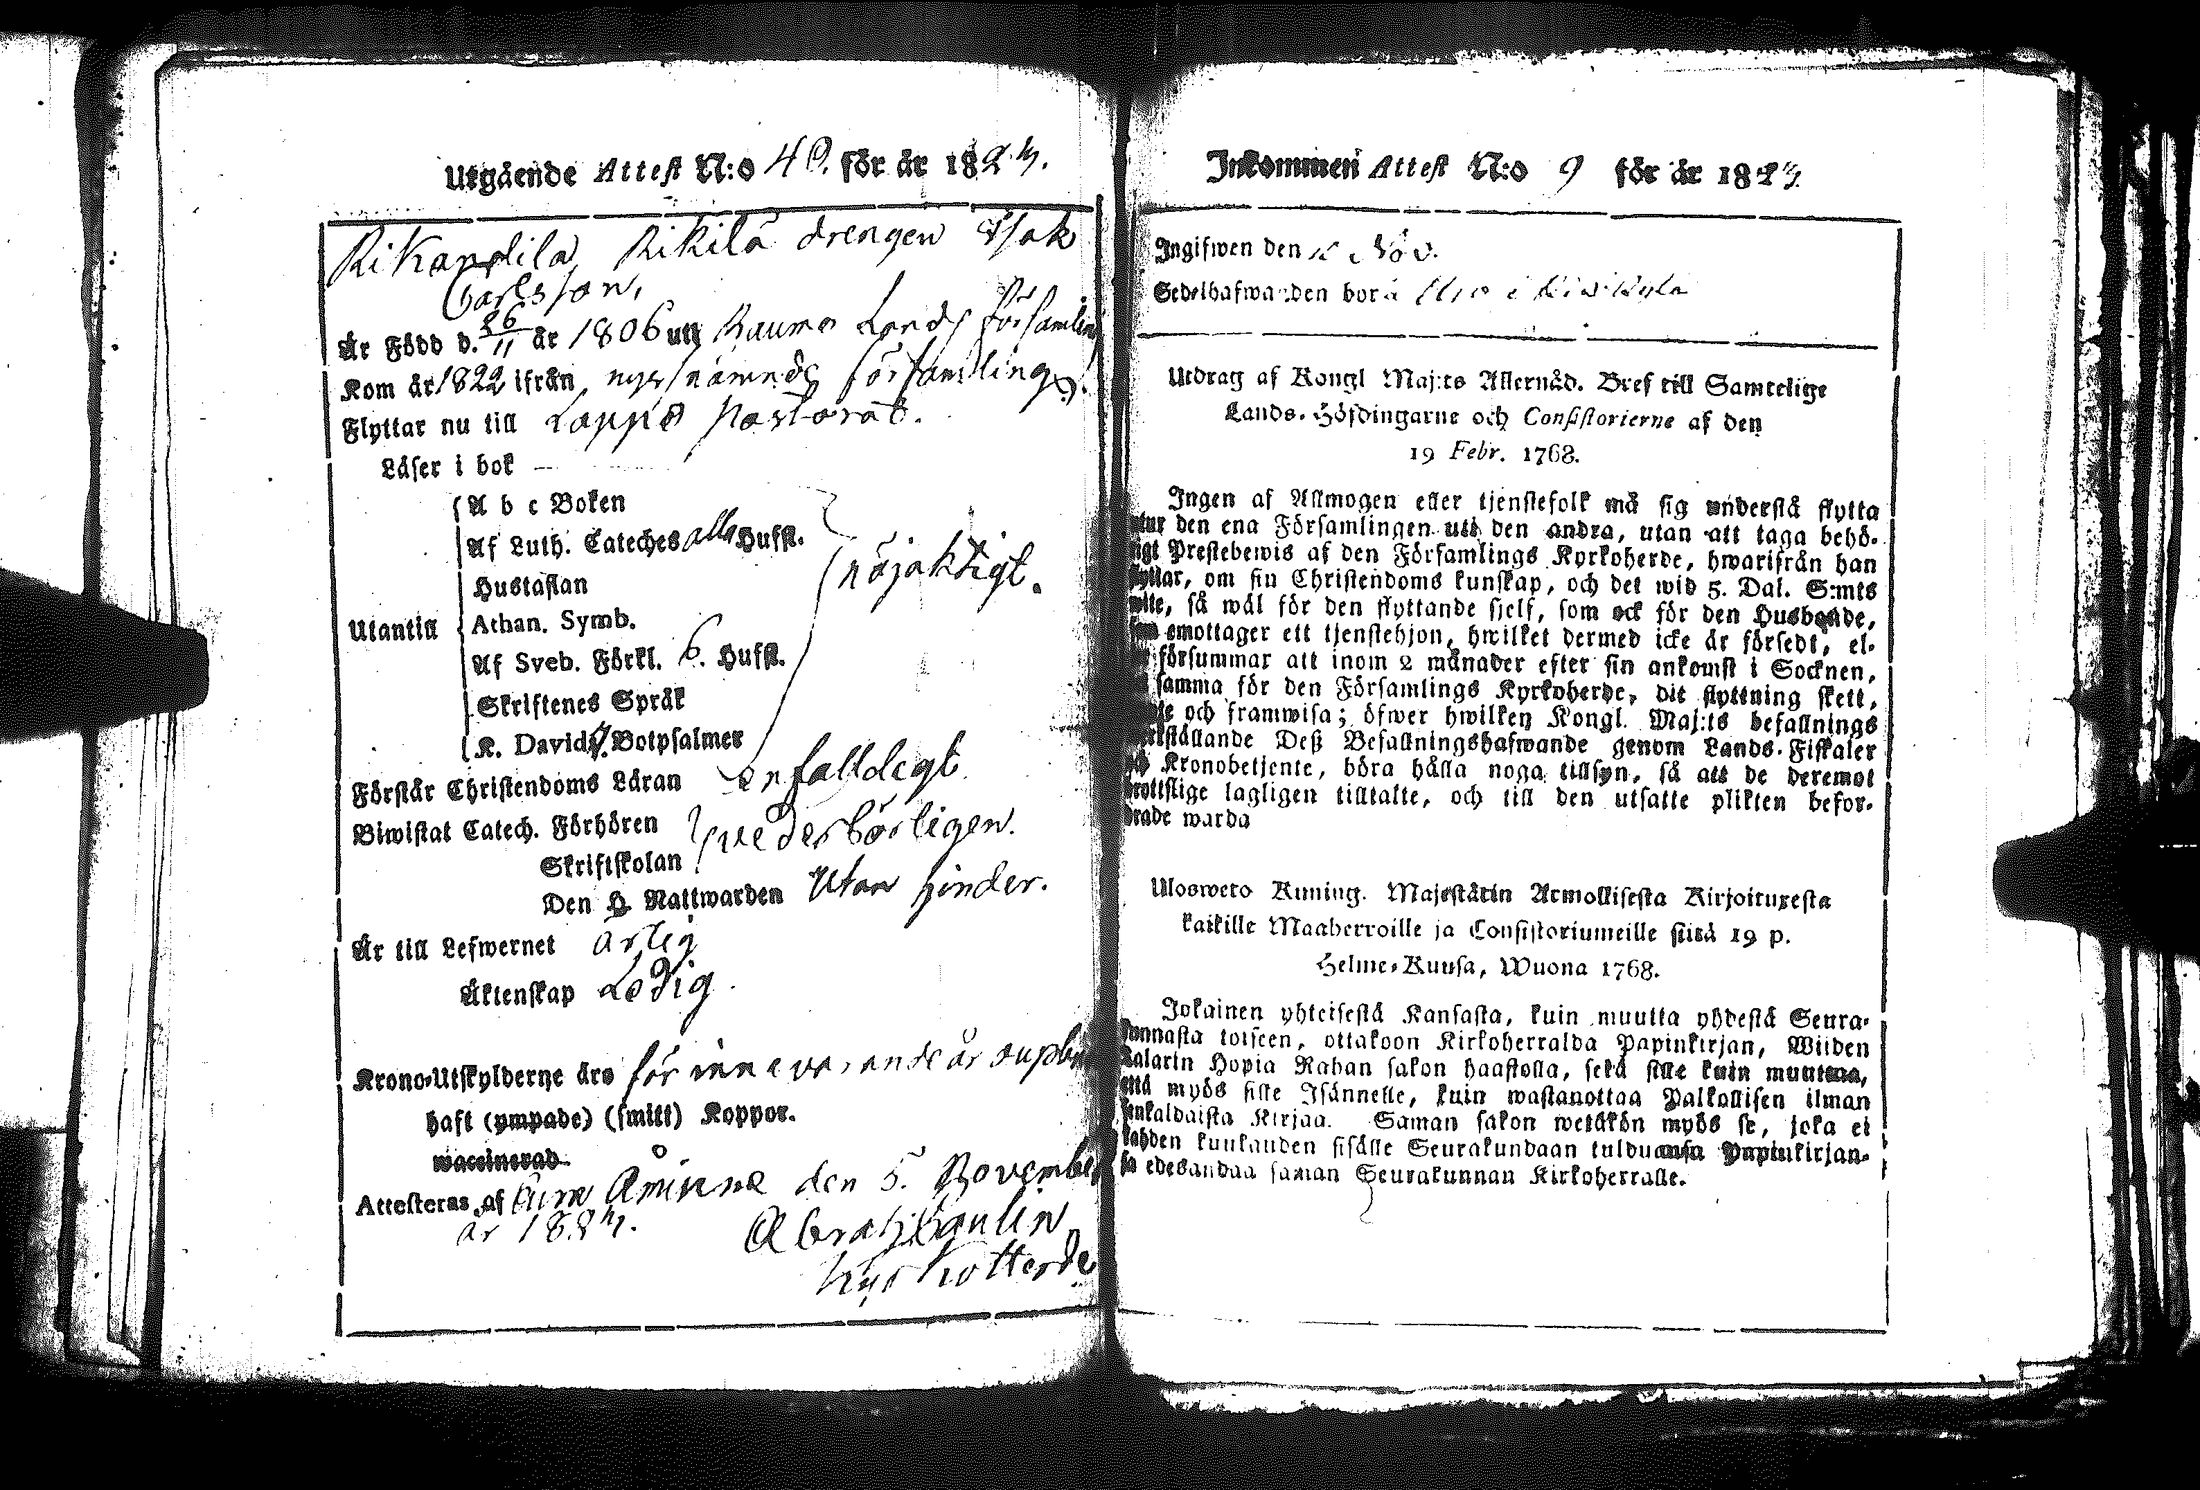 Utgående Attest N:o 40. för år 1823.
Rikandila Rikilä drengen Isak
Carlsson,
Är Född d. 26/11 år 1806 uti Raumo Lands församling
Kom år 1822 ifrån nyssnämnde församling.
Flyttar nu till Lappo Pastorat.
Läser i bok —
A b c Boken
Af Luth. Cateches alla Hufst.
Hustaflan
nöjaktigt.
Utantill
Athan. Symb.
Af Sveb. Förkl. 6. Hufst.
Skriftenes Språk
K. Davids 7. Botpsalmer
Förstår Christendoms Läran enfalldigt
Biwistat Catech. Förhören
wederbörligen.
Skriftskolan
Den H. Nattwarden Utan hinder.
Är till Lefwernet ärlig
Äktenskap Ledig.
Krono-Utskylderne äro för innevarande år
haft (ympade) (smitt) Koppor.
waccinerad
Attesteras af Åminne den 5. November
år 1823.
Abrah Paulin
Kyrkoherde
Inkommen Attest N:o 9 för år 1823.
Ingifwen den Nov.
Sedelhafwanden bor i
Utdrag af Kongl Maj:ts Allernåd. Bref till Samtelige
Lands-Höfdingarne och Consistorierne af den
19 Febr. 1768.
Ingen af Allmogen eller tjenstefolk må sig understå flytta
utur den ena Församlingen uti den andra, utan att taga behö-
rigt Prestebewis af den Församlings Kyrkoherde, hwarifrån han
flyttar, om sin Christendoms kunskap, och det wid 5. Dal. S:mts
wite, så wäl för den flyttande sjelf, som ock för den Husbonde,
som emottager ett tjenstehjon, hwilket dermed icke är försedt, el-
ler försummar att inom 2 månader efter sin ankomst i Socknen,
samma för den Församlings Kyrkoherde, dit flyttning skett,
och framwisa; öfwer hwilken Kongl. Maj:ts befallnings
werkställande Deß Befallningshafwande genom Lands-Fiskaler
och Kronobetjente, böra hålla noga tillsyn, så att de deremot
brottslige lagligen tilltalte, och till den utsatte plikten befor-
drade warda
Ulosweto Kuning. Majestätin Armollisesta Kirjoituxesta
kaikille Maaherroille ja Consistoriumeille siitä 19 p.
Helme-Kuusa, Wuona 1768.
Jokainen yhteisestä Kansasta, kuin muutta yhdestä Seura-
kunnasta toiseen, ottakoon Kirkoherralda Papinkirjan, Wiiden
Talarin Hopia Rahan sakon haastolla, sekä sille kuin muuttaa,
että myös sille Isännelle, kuin wastanottaa Palkollisen ilman
senkaldaista Kirjaa. Saman sakon wetäkön myös se, joka ei
kahden kuukauden sisälle Seurakundaan tulduansa Papinkirjan-
sa edesandaa saman Seurakunnan Kirkoherralle.